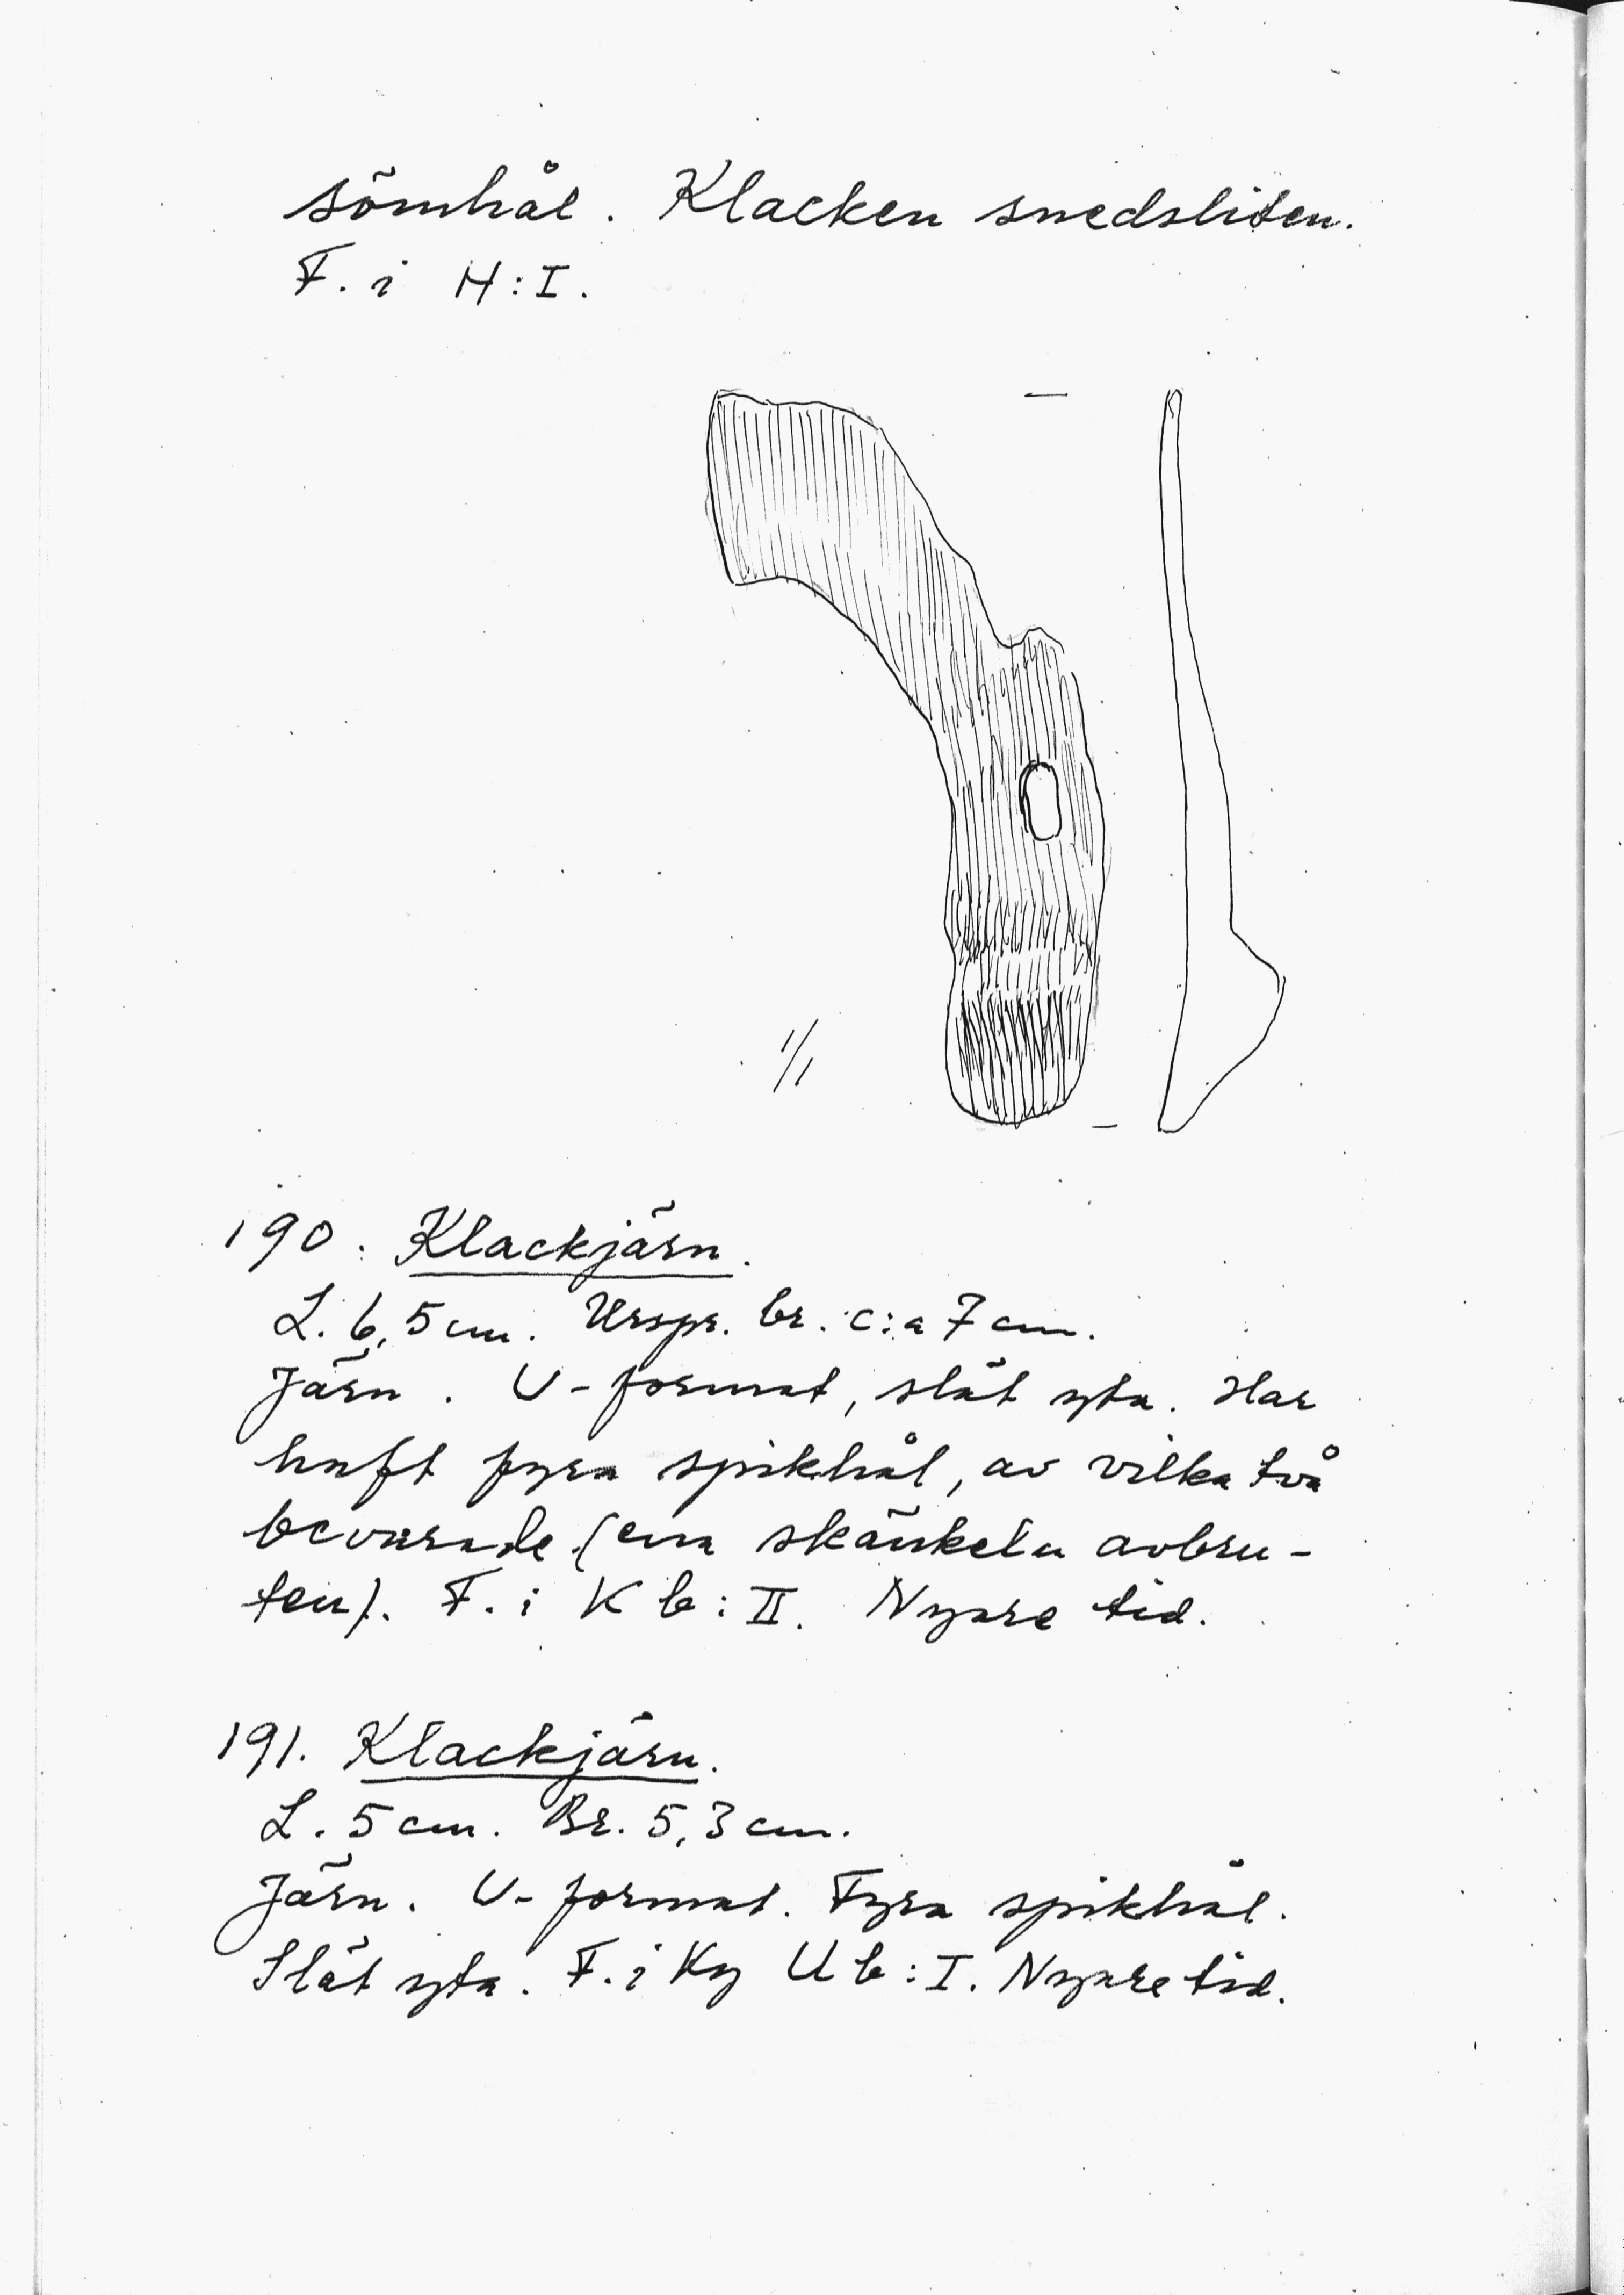 sömhål. Klacken snedsliten.
F. i H:I.
1/1
190. Klackjärn.
L. 6,5 cm. Urspr. br. c:a 7 cm.
Järn. U-format, slät yta. Har
haft fyra spikhål, av vilka två
bevarade (ena skänkeln avbru-
ten). F. i K b:II. Nyare tid.
191. Klackjärn.
L. 5 cm. Br. 5,3 cm.
Järn. U-format. Fyra spikhål.
Slät yta. F. i Ky U b:I. Nyare tid.